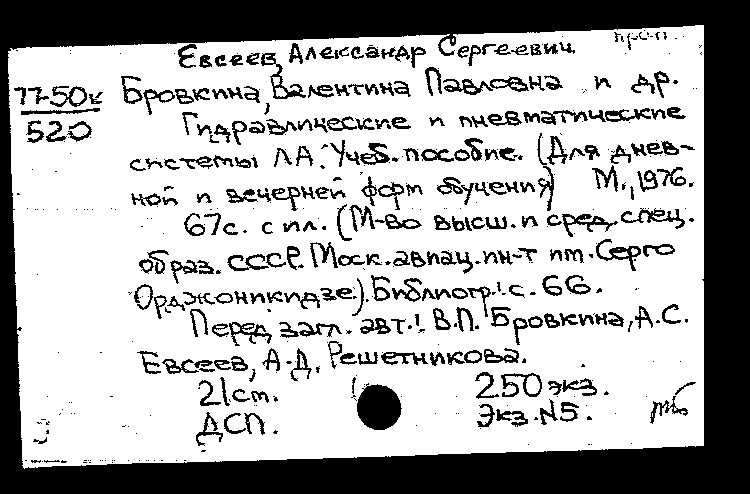 Евсеев, Александр Сергеевич
77-50к Бровкина, Валентина Павловна и др.
520 Гидравлические и пневматические
системы ЛА. Учеб. пособие. (Для днев-
ной и вечерней форм обучения) М., 1976.
67с. с ил. (М-во высш. и сред. спец.
образ. СССР. Моск. авиац. ин-т им. Серго
Орджоникидзе). Библиогр.: с. 66.
Перед загл. авт.: В.П. Бровкина, А.С.
Евсеев, А.Д. Решетникова.
21см. 250 экз.
ДСП. Экз. N5.